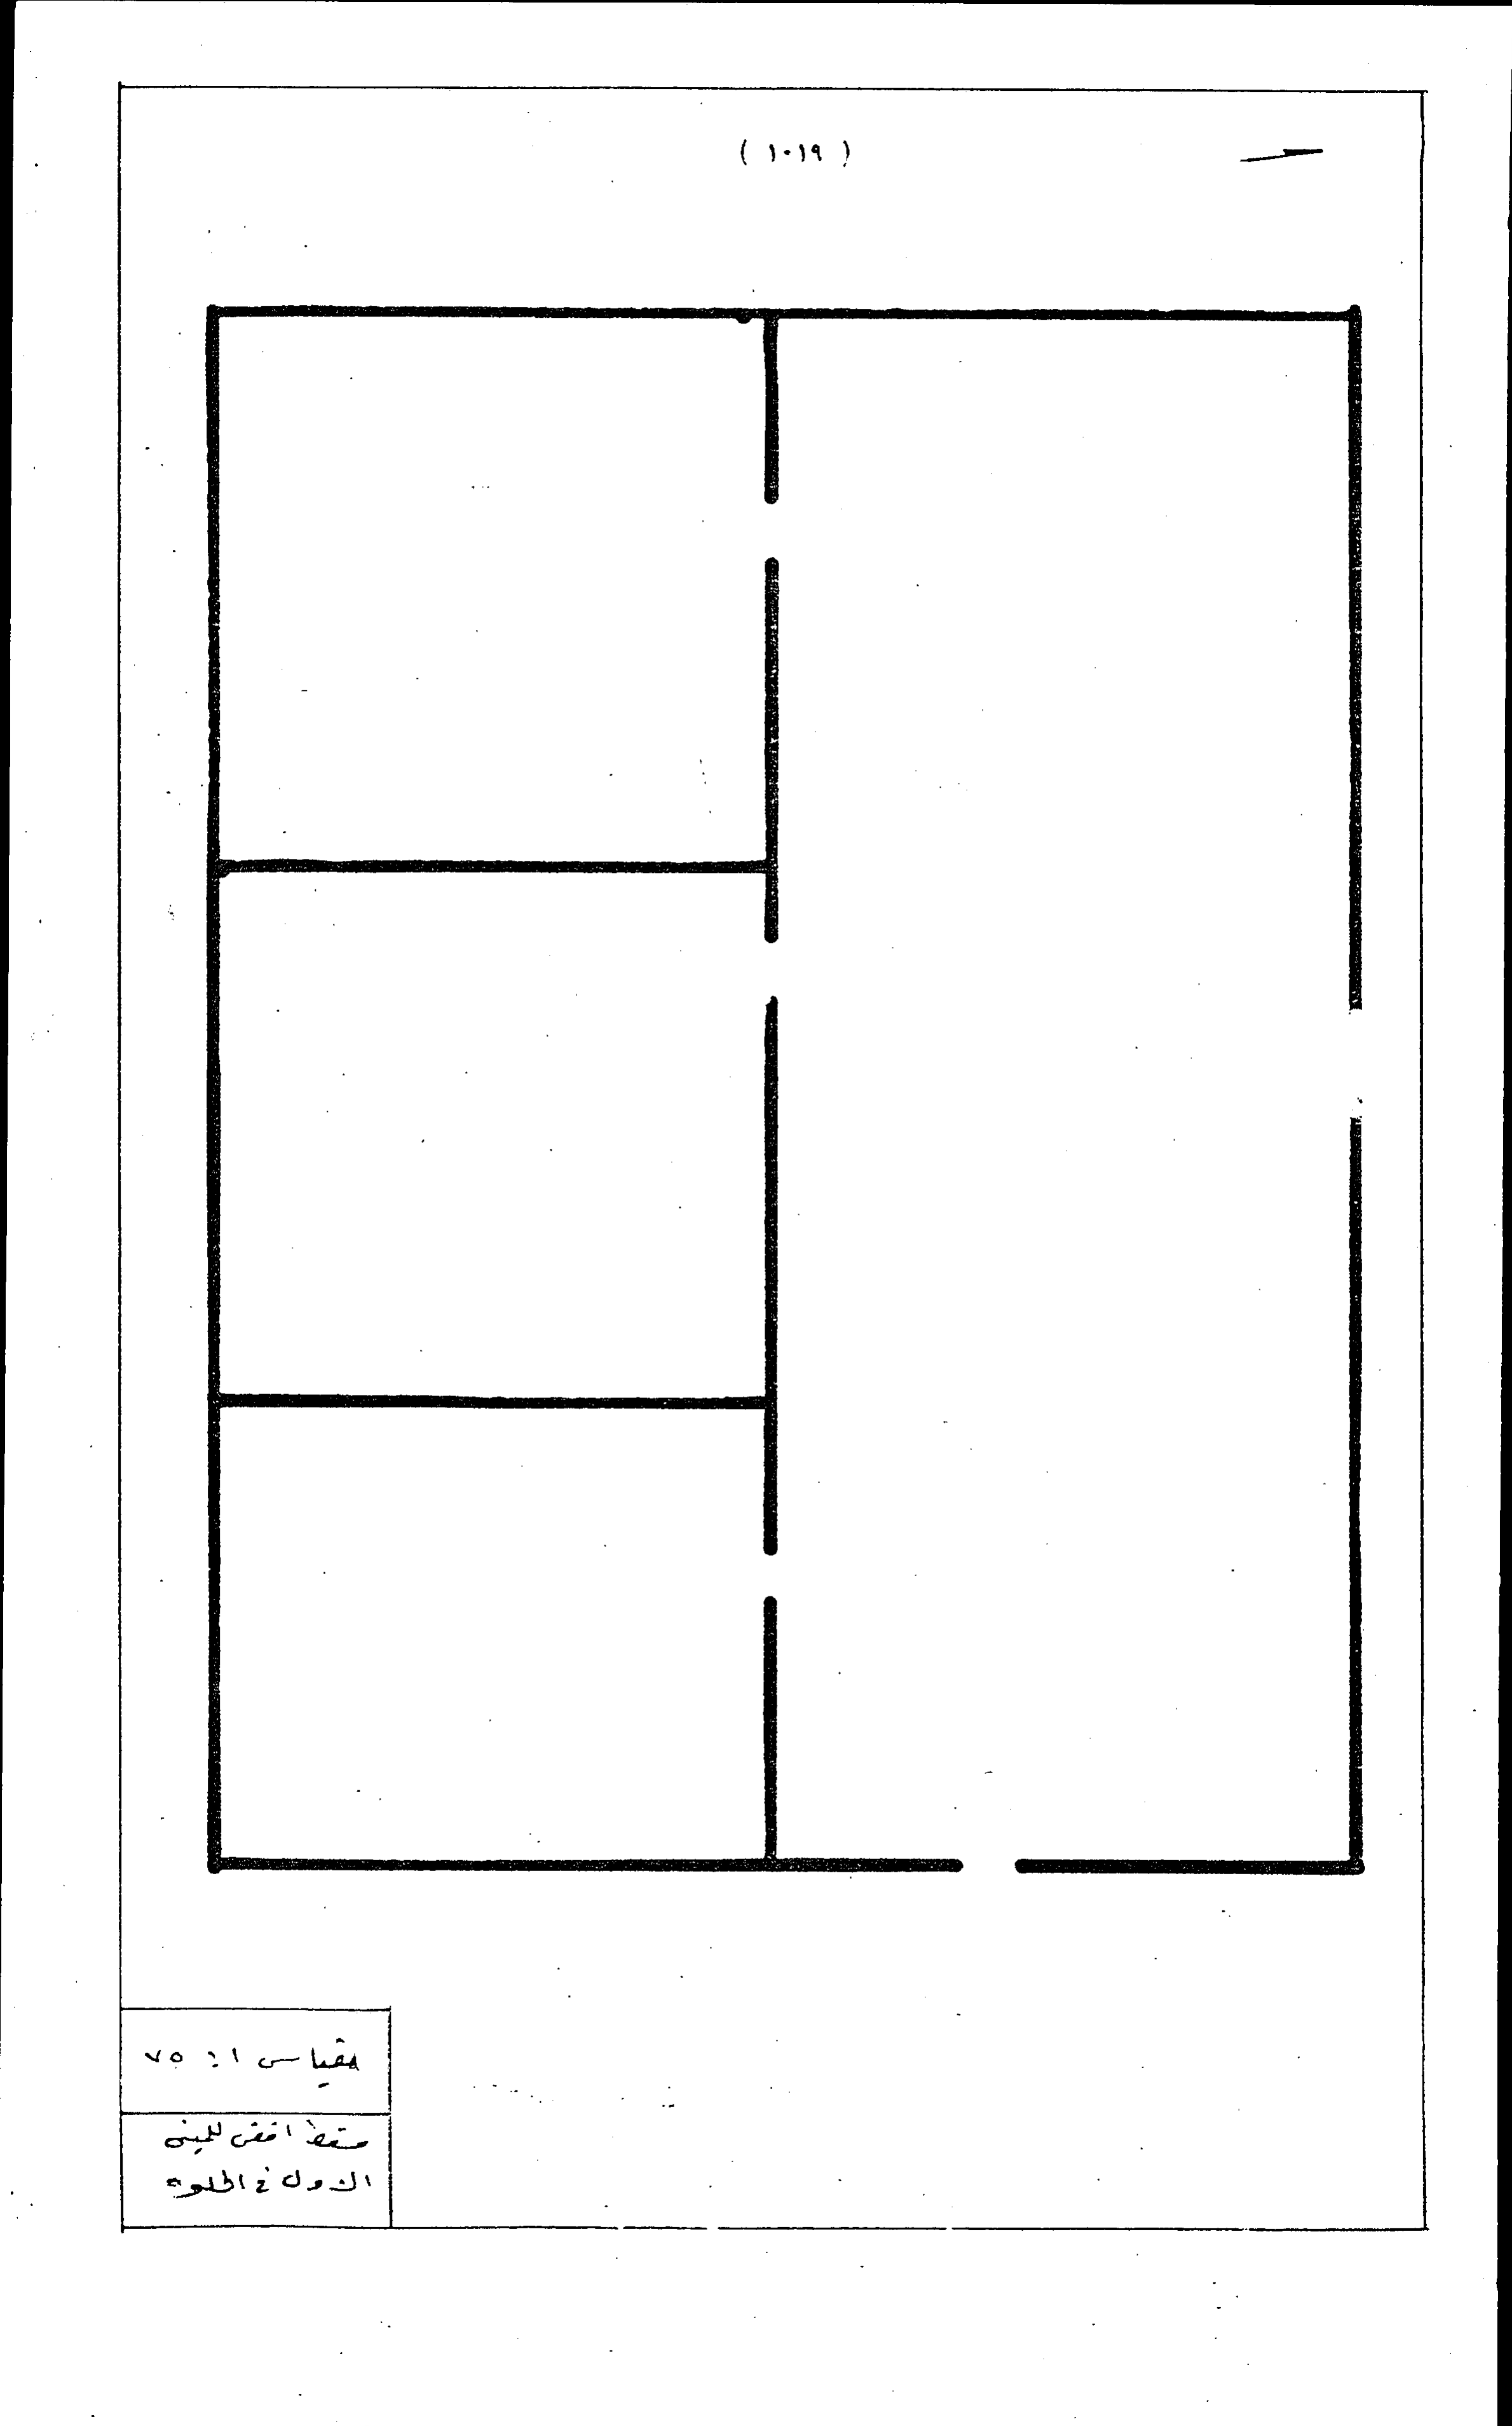 ( ١٠١٩ )
مقياس ١ : ٧٥
مسقط افقى للمبنى
الاول فى الخلوه